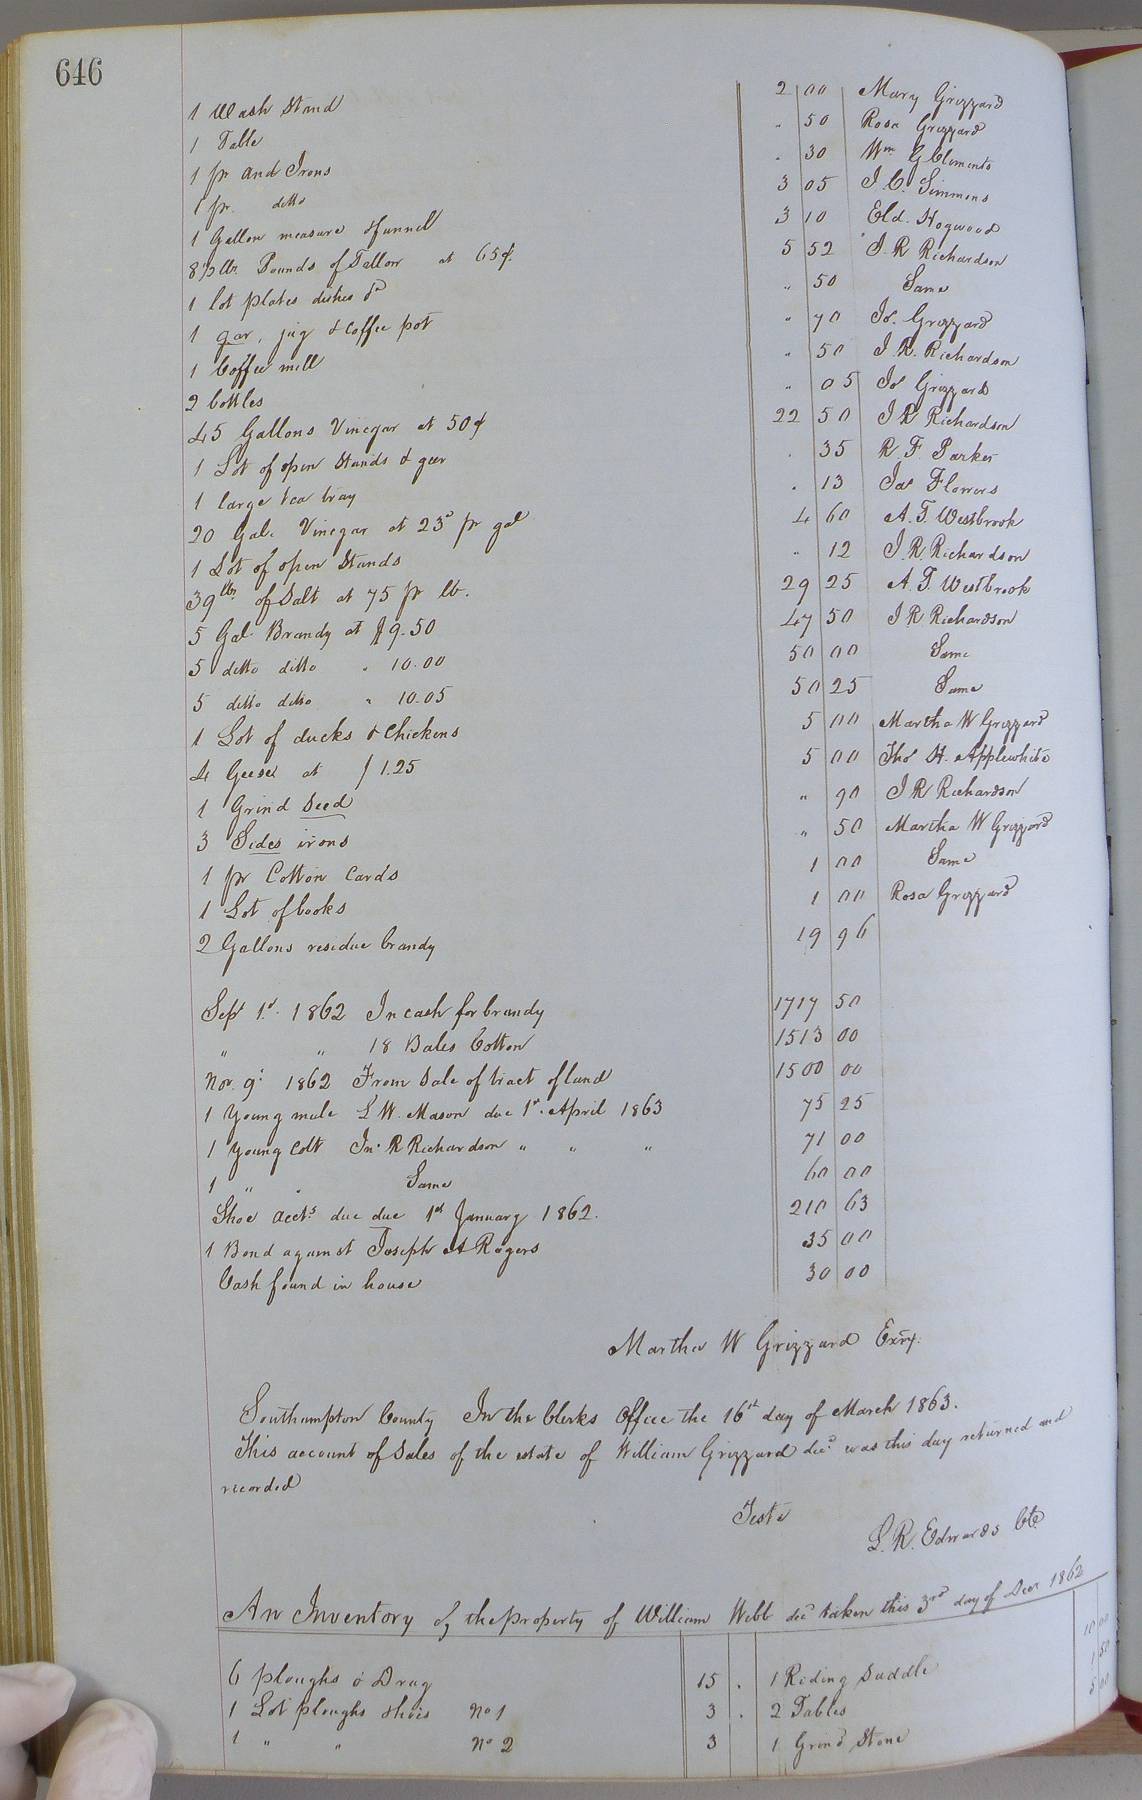 646
1 Wash Stand 2 00 Mary Grizzard
1 Table " 50 Rosa Grizzard
1 pr and Irons " 30 Wm G Clements
1 pr ditto 3 05 J. C. Simmons
1 Gallon measure & funnell 3 10 Eld. Hogwood
8½ lbs Pounds of Tallow at 65¢ 5 52 J. R Richardson
1 lot plates dishes &c " 50 Same
1 gar, jug & coffee pot " 70 Jos. Grizzard
1 Coffee mill " 50 J. R. Richardson
2 bottles " 05 Jos Grizzard
45 Gallons Vinegar at 50¢ 22 50 J R Richardson
1 Lot of open Stands & geer " 35 R. F. Parker
1 large tea tray " 13 Jas Flowers
20 Gal. Vinegar at 23c pr gal 4 60 A. T. Westbrook
1 Lot of open Stands " 12 J. R Richardson
39 lbs of Salt at 75 pr lb. 29 25 A. T. Westbrook
5 Gal. Brandy at $9.50 47 50 J R Richardson
5 ditto ditto " 10.00 50 00 Same
5 ditto ditto " 10.05 50 25 Same
1 Lot of ducks & Chickens 5 00 Martha W Grizzard
4 Geese at $1.25 5 00 Thos H. Applewhite
1 Grind Seed " 90 J R Richardson
3 Sides irons " 50 Martha W Grizzard
1 pr Cotton Cards 1 00 Same
1 Lot of books 1 00 Rosa Grizzard
2 Gallons residue brandy 19 96
Sept 1st 1862 In cash for brandy 1717 50
" " 18 Bales Cotton 1513 00
Nov. 9th 1862 From Sale of tract of land 1500 00
1 Young mule L W. Mason due 1st April 1863 75 25
1 Young Colt Jno R Richardson " " " 71 00
1 " " Same 60 00
Shoe accts due due 1st January 1862. 210 63
1 Bond against Joseph A Rogers 35 00
Cash found in house 30 00
Martha W Grizzard Exrx.
Southampton County In the Clerks Office the 16th day of March 1863.
This account of Sales of the estate of William Grizzard decd was this day returned and
recorded
Teste
L. R. Edwards Clk
An Inventory of the property of William Webb decd taken this 3rd day of Decr 1862
6 ploughs & Drag 15 . 1 Riding Saddle 10 00
1 Lot ploughs shois No 1 3 . 2 Tables 1 50
1 " " No 2 3 1 Grind Stone 5 00